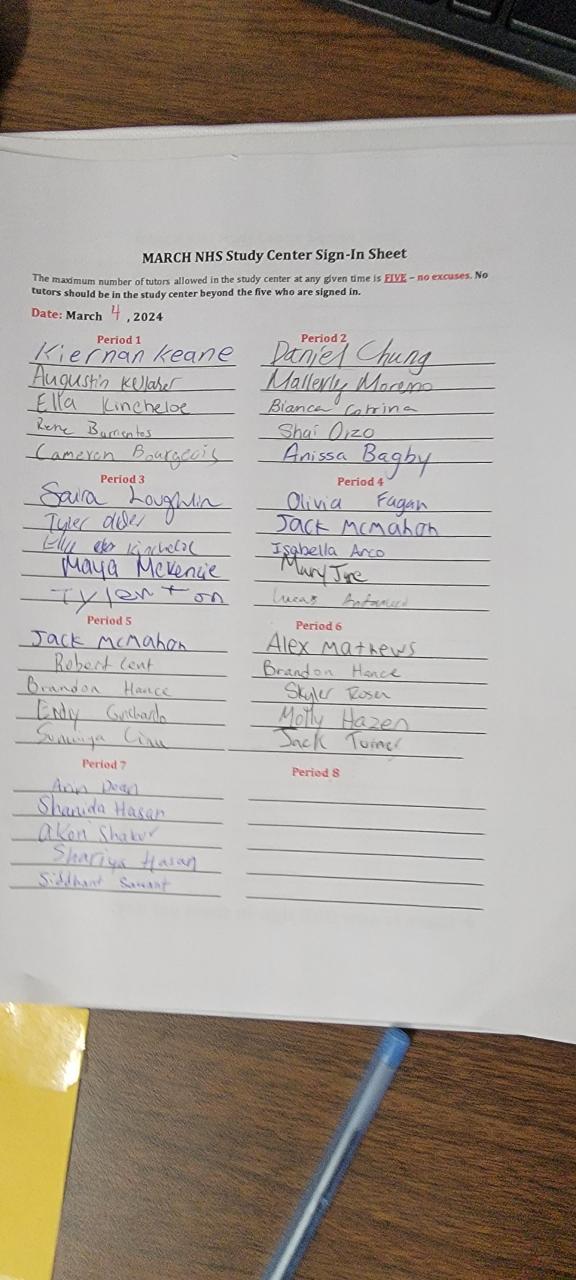 MARCH NHS Study Center Sign-In Sheet
The maximum number of tutors allowed in the study center at any given time is FIVE – no excuses. No
tutors should be in the study center beyond the five who are signed in.
Date: March 4, 2024
Period 1
Kiernan Keane
Augustin Kelleher
Ella Kincheloe
Rene Barrientos
Cameron Bourgeois
Period 2
Daniel Chung
Mallerly Moreno
Bianca
Shai Orzo
Anissa Bagby
Period 3
Saira Loughlin
Tyler
Kincheloe
Maya McKenzie
Period 4
Olivia Fagan
Jack McMahon
Isabella Arco
Mary
Lucas
Period 5
Jack McMahon
Robert Cent
Brandon Hance
Period 6
Alex Mathews
Brandon Hance
Skyler Rosen
Molly Hazen
Jack Turner
Period 7
Ann Dean
Shanida Hasan
Akon Shakur
Shariya Hasan
Siddhant Sawant
Period 8